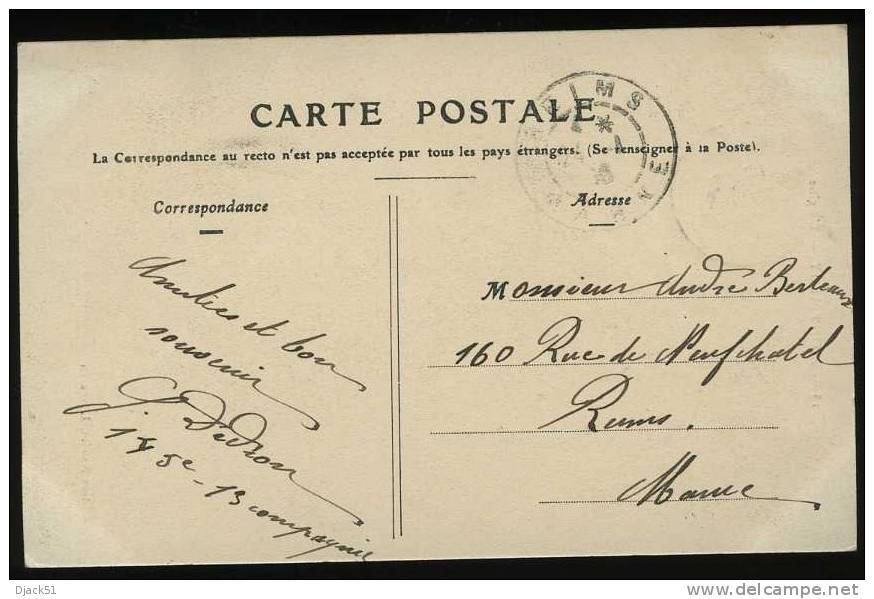 CARTE POSTALE
La Correspondance au recto n'est pas acceptée par tous les pays étrangers. (Se renseigner à la Poste).
Correspondance
Amitiés et bon
souvenir
G Dedron
5e - 13 compagnie
REIMS
Adresse
Monsieur André Berteaux
160 Rue de Neufchatel
Reims.
Marne
Djack51
www.delcampe.net